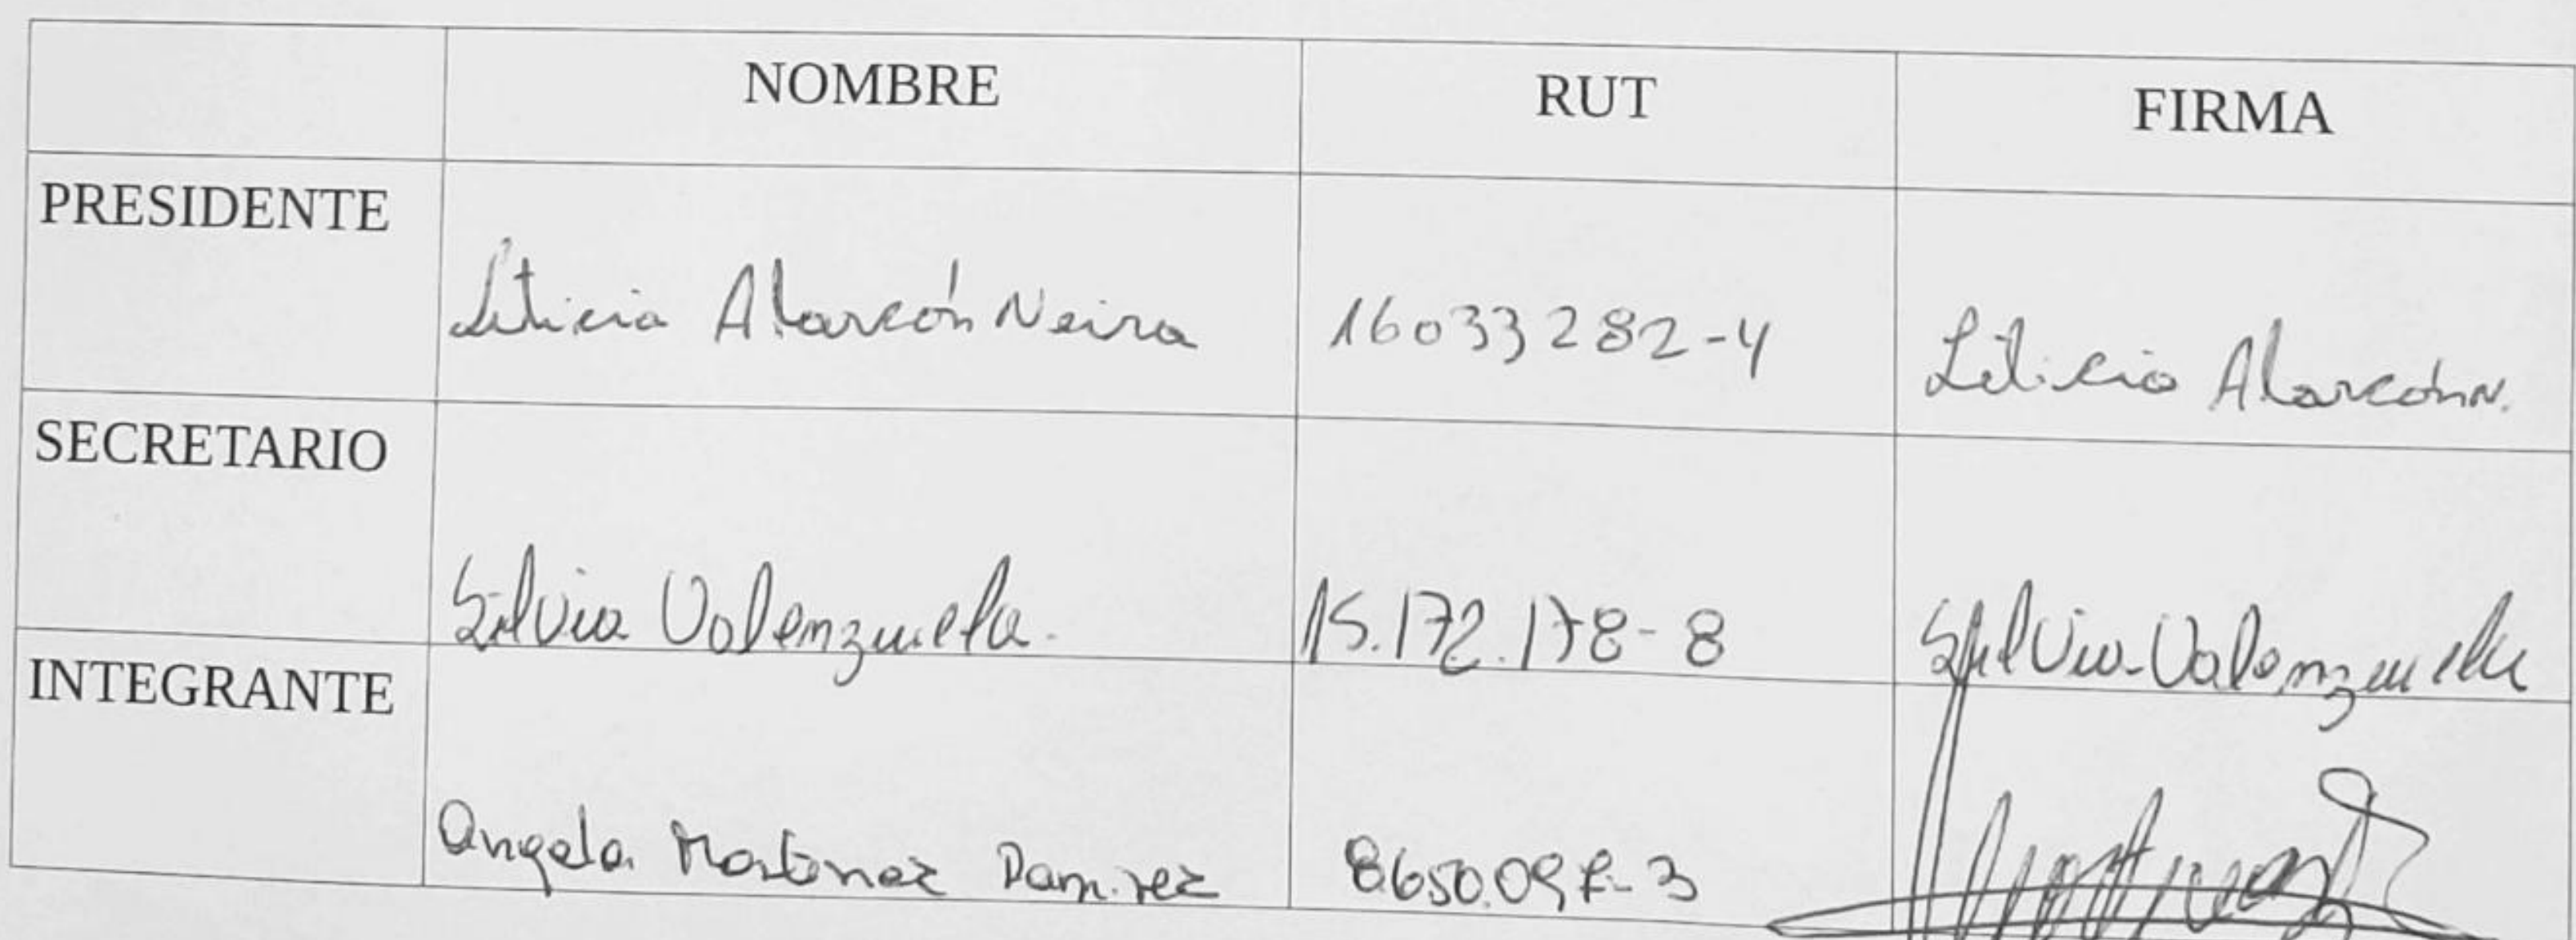 NOMBRE RUT FIRMA
PRESIDENTE
Leticia Alarcón Neira 16033282-4 Leticia Alarcón N.
SECRETARIO
Silvia Valenzuela. 15.172.178-8 Silvia Valenzuela
INTEGRANTE
Angela Martinez Ramirez 8.650.097-3